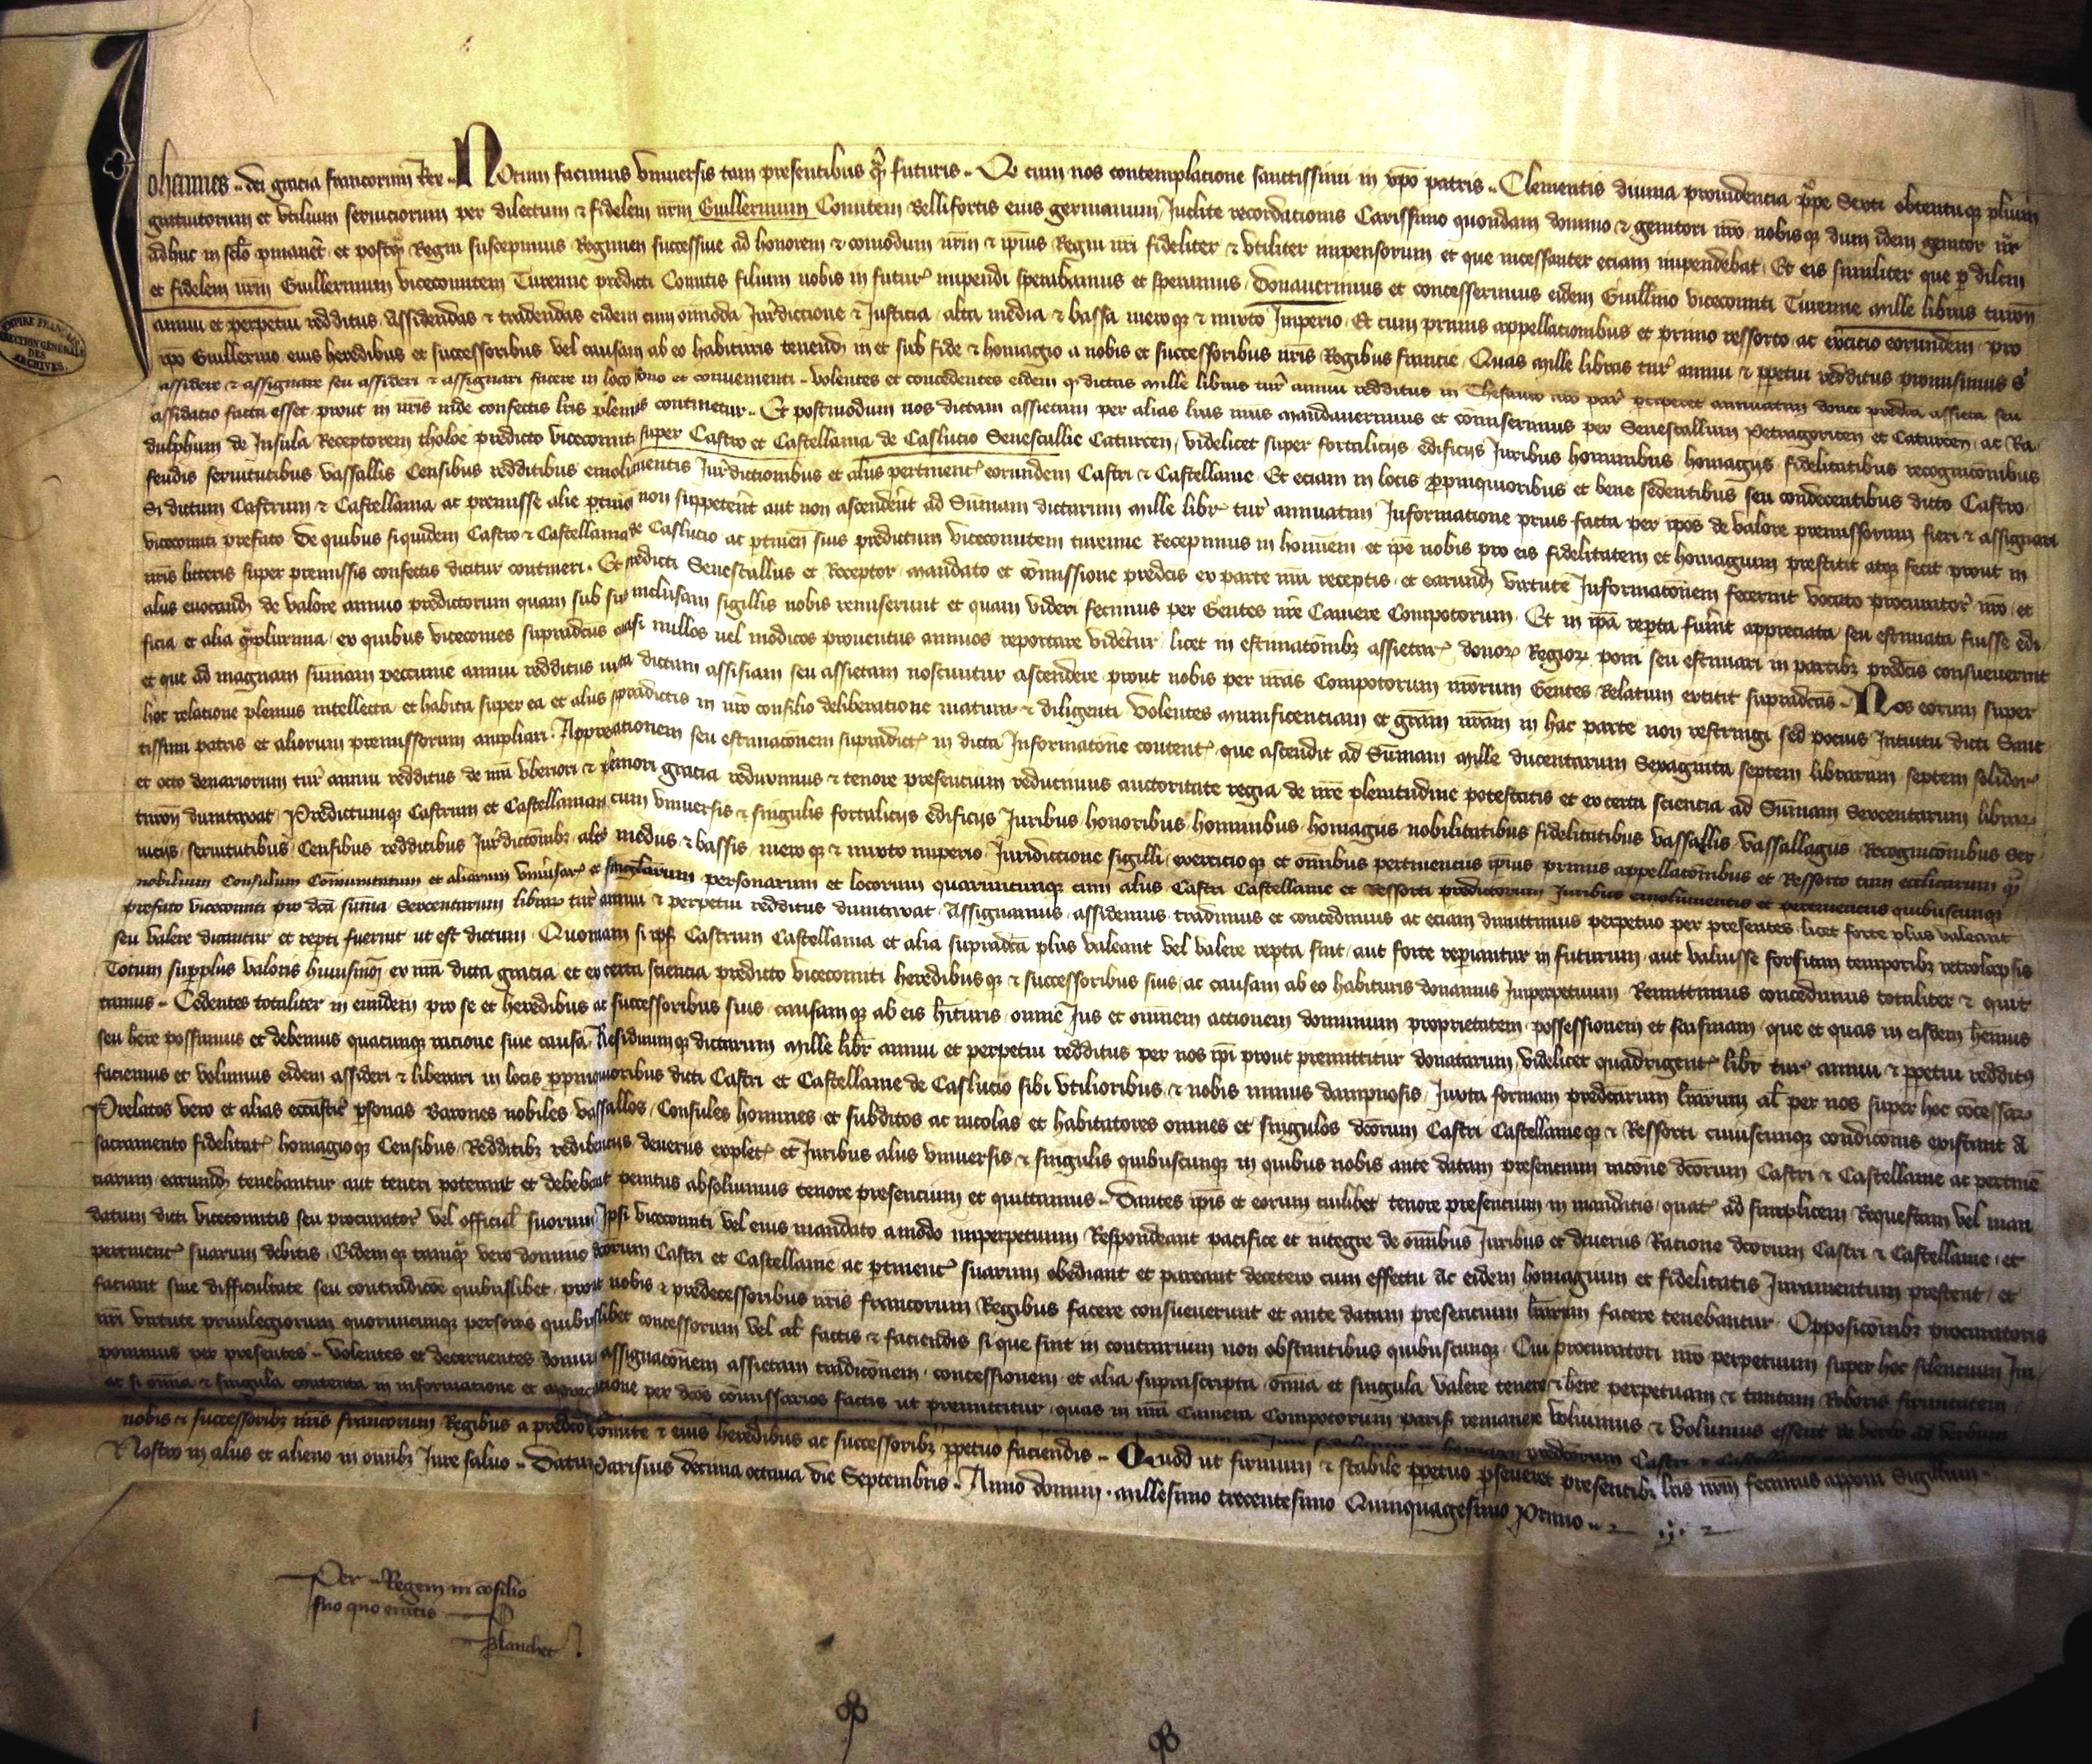 Johannes dei gracia francorum Rex Notum facimus universis tam presentibus q̃ futuris Qd cum nos contemplacione sanctissimi in xpo patris Clementis divina providencia ppe Sexti obtentuq plium
gratuitorum et utilium serviciorum per dilectum & fidelem nrm Guillermum Comitem Bellifortis eius germanum Inclite recordacionis Carissimo quondam domino & genitori nro nobisq dum idem genitor nr
adhuc in sclo pmanet et postq Regni suscepimus Regimen successive ad honorem & comodum nrm & ipius Regni nri fideliter & utiliter impensorum et que incessanter eciam impendebat Et eis similiter que p dilcm
et fidelem nrm Guillermum vicecomitem Turenne predicti Comitis filium nobis in futur impendi sperabamus et speramus donaverimus et concesserimus eidem Guillmo vicecomiti Turenne mille libras turon
annui et perpetui redditus Assidendas & tradendas eidem cum omoda Jurdiccione & Justicia alta media & bassa meroq & mixto Imperio Et cum primis appellacionibus et primo ressorto ac exercicio eorundem pro
ipo Guillermo eius heredibus et successoribus vel causam ab eo habituris tenend in et sub fide & homagio a nobis et successoribus nris Regibus francie Quas mille libras tur annui & ppetui redditus promisimus
assidere & assignare seu assideri & assignari facere in loco bono et convenienti volentes et concedentes eidem q dictas mille libras tur annui redditus in Thesauro nro par perciperet annuatim donec predca assieta seu
assidacio facta esset prout in nris inde confectis lris plenius continetur Et postmodum nos dictam assietam per alias lras nras mandaverimus et comiserimus per Senescallum Petragoricen et Caturcen ac Ra
dulphum de Insula Receptorem tholose predicto vicecomiti super Castro et Castellania de Caslucio Senescallie Caturcen videlicet super fortaliciis edificiis Juribus hominibus homagiis fidelitatibus recognicionibus
feudis servitutibus vassallis Censibus redditibus emolumentis Jurdictionibus et aliis pertinenc eorundem Castri & Castellanie Et eciam in locis ppinquioribus et bene sedentibus seu condecentibus dicto Castro
Si dictum Castrum & Castellania ac premisse alie ptinen non suppeterent aut non ascenderent ad Summam dictarum mille libr tur annuatim Informatione prius facta per ipos de valore premissorum fieri & assignari
vicecomiti prefato De quibus siquidem Castro & Castellania de Caslucio ac ptinen suis predictum vicecomitem turenne Recepimus in hominem et ipe nobis pro eis fidelitatem et homagium prestitit atq fecit prout in
nris litteris super premissis confectis dicitur contineri Et predicti Senescallus et Receptor mandato et comissione predcis ex parte nra receptis et earund virtute Informacionem fecerint vocato procurator nro et
aliis evocand de valore annuo predictorum quam sub suis inclusam sigillis nobis remiserunt et quam videri fecimus per Gentes nre Camere Compotorum Et in ipa repta fuerint appreciata seu estimata fuisse edi
ficia et alia qplurima ex quibus vicecomes supradcus quasi nullos vel modicos proventus annuos reportare videtur licet in estimacionibz assietar donor Regior poni seu estimari in partibz predcis consueverint
et que ad magnam summam peccunie annui redditus iuxta dictam assisiam seu assietam noscuntur ascendere prout nobis per nras Compotorum nrorum Gentes Relatum extitit supradcas Nos eorum super
hoc relatione plenius intellecta et habita super ea et aliis predictis in nro consilio deliberatione matura & diligenti Volentes munificentiam et gram nram in hac parte non restringi sed pocius Intuitu dicti Sanc
tissimi patris et aliorum premissorum ampliari Appreciationem seu estimacionem supradict in dicta Informacione content que ascendit ad Summam mille ducentarum Sexaginta septem librarum septem solidor
et octo denariorum tur annui redditus de nra uberiori & pleniori gracia reduximus & tenore presencium reducimus auctoritate regia de nre plenitudine potestatis et ex certa sciencia ad Summam Sexcentarum librar
turon dumtaxat Predictumq Castrum et Castellaniam cum universis & singulis fortaliciis edificiis Juribus honoribus hominibus homagiis nobilitatibus fidelitatibus vassallis vassallagiis Recognicionibus Ser
viciis servitutibus Censibus redditibus Jurdictionibz altis mediis & bassis meroq & mixto imperio Juridiccione sigilli exercicioq et omibus pertinenciis ipius primis appellacionibus et Ressorto tum eccliarum q
nobilium Consulum Comunitatum et aliarum universar et singularum personarum et locorum quarumcunq cum aliis Castri Castellanie et Ressorti predictorum Juribus emolumentis et pertinenciis quibuscunq
prefato vicecomiti pro dca suma Sexcentarum librar tur annui & perpetui redditus dumtaxat Assignamus assidemus tradimus et concedimus ac eciam dimittimus perpetuo per presentes licet forte plus valeant
seu valere dicantur et repti fuerint ut est dictum Quoniam si ipm Castrum Castellania et alia supradca plus valeant vel valere repta sint aut forte repiantur in futurum aut valuisse forsitan temporibz retrolapsis
Totum supplus valoris huiusmodi ex nra dicta gracia et ex certa sciencia predicto vicecomiti heredibusq & successoribus suis ac causam ab eo habituris donamus Imperpetuum Remittimus concedimus totaliter & quit
tamus Cedentes totaliter in eundem pro se et heredibus ac successoribus suis causamq ab eis hituris omne Jus et omnem actionem dominium proprietatem possessionem et saisinam que et quas in eisdem hemus
seu here possumus et debemus quacunq racione sive causa Residuumq dictarum mille libr annui et perpetui redditus per nos ipi prout premittitur donatarum videlicet quadringent libr tur annui & ppetui redditus
faciemus et volumus eidem assideri & liberari in locis ppinquioribus dicti Castri et Castellanie de Caslucio sibi utilioribus & nobis minus dampnosis Juxta formam predcarum lrarum al per nos super hoc concessar
Prelatos vero et alias eccasticas psonas Barones nobiles vassallos Consules homines et subditos ac incolas et habitatores omnes et singulos dcorum Castri Castellanieq & Ressorti cuiuscunq condicionis existant a
sacramento fidelitat homagioq Censibus Redditibz redibenciis deveriis explet et Juribus aliis universis & singulis quibuscunq in quibus nobis ante datam presentium racione dcorum Castri & Castellanie ac pertinen
ciarum earund tenebantur aut teneri poterant et debebant penitus absolvimus tenore presencium et quittamus Dantes ipis et eorum cuilibet tenore presencium in mandatis quat ad simplicem Requestam vel man
datum dicti vicecomitis seu procurator vel official suorum Ipsi vicecomiti vel eius mandato amodo imperpetuum Respondeant pacifice et integre de omibus Juribus et deveriis Ratione dcorum Castri & Castellanie et
pertinenc suarum debitis Eidemq tamq vero domino dcorum Castri et Castellanie ac ptinenc suarum obediant et pareant decetero cum effectu Ac eidem homagium et fidelitatis Juramentum prestent et
faciant sine difficultate seu contradicione quibuslibet prout nobis & predecessoribus nris francorum Regibus facere consueverunt et ante datam presencium lrarum facere tenebantur Opposicionibz procuratoris
nri virtute privilegiorum quorumcunq personis quibuslibet concessorum vel al factis & faciendis si que sint in contrarium non obstantibus quibuscunq Cui procuratori nro perpetuum super hoc silencium Im
ponimus per presentes Volentes et decernentes donum assignacionem assietam tradicionem concessionem et alia suprascripta omia et singula valere tenere & here perpetuam & tantam Roboris firmitatem
ac si omia & singula contenta in informatione et appreciatione per dcos comissarios factis ut premittitur quas in nra Camera Compotorum paris remanere volumus & volumus essent de verbo ad verbum
predcorum Castri & Castellanie
nobis & successoribz nris francorum Regibus a predco Comite & eius heredibus ac successoribz ppetuo faciendis Quod ut firmum & stabile ppetuo pseveret presentibz lris nrm fecimus apponi Sigillum
Nostro in aliis et alieno in omibz Jure salvo Datum Parisius decima octava die Septembris Anno domini millesimo trecentesimo Quinquagesimo Primo
Per Regem in consilio
suo quo eratis
Blanchet
EMPIRE FRANÇAIS
DIRECTION GÉNÉRALE
DES
ARCHIVES